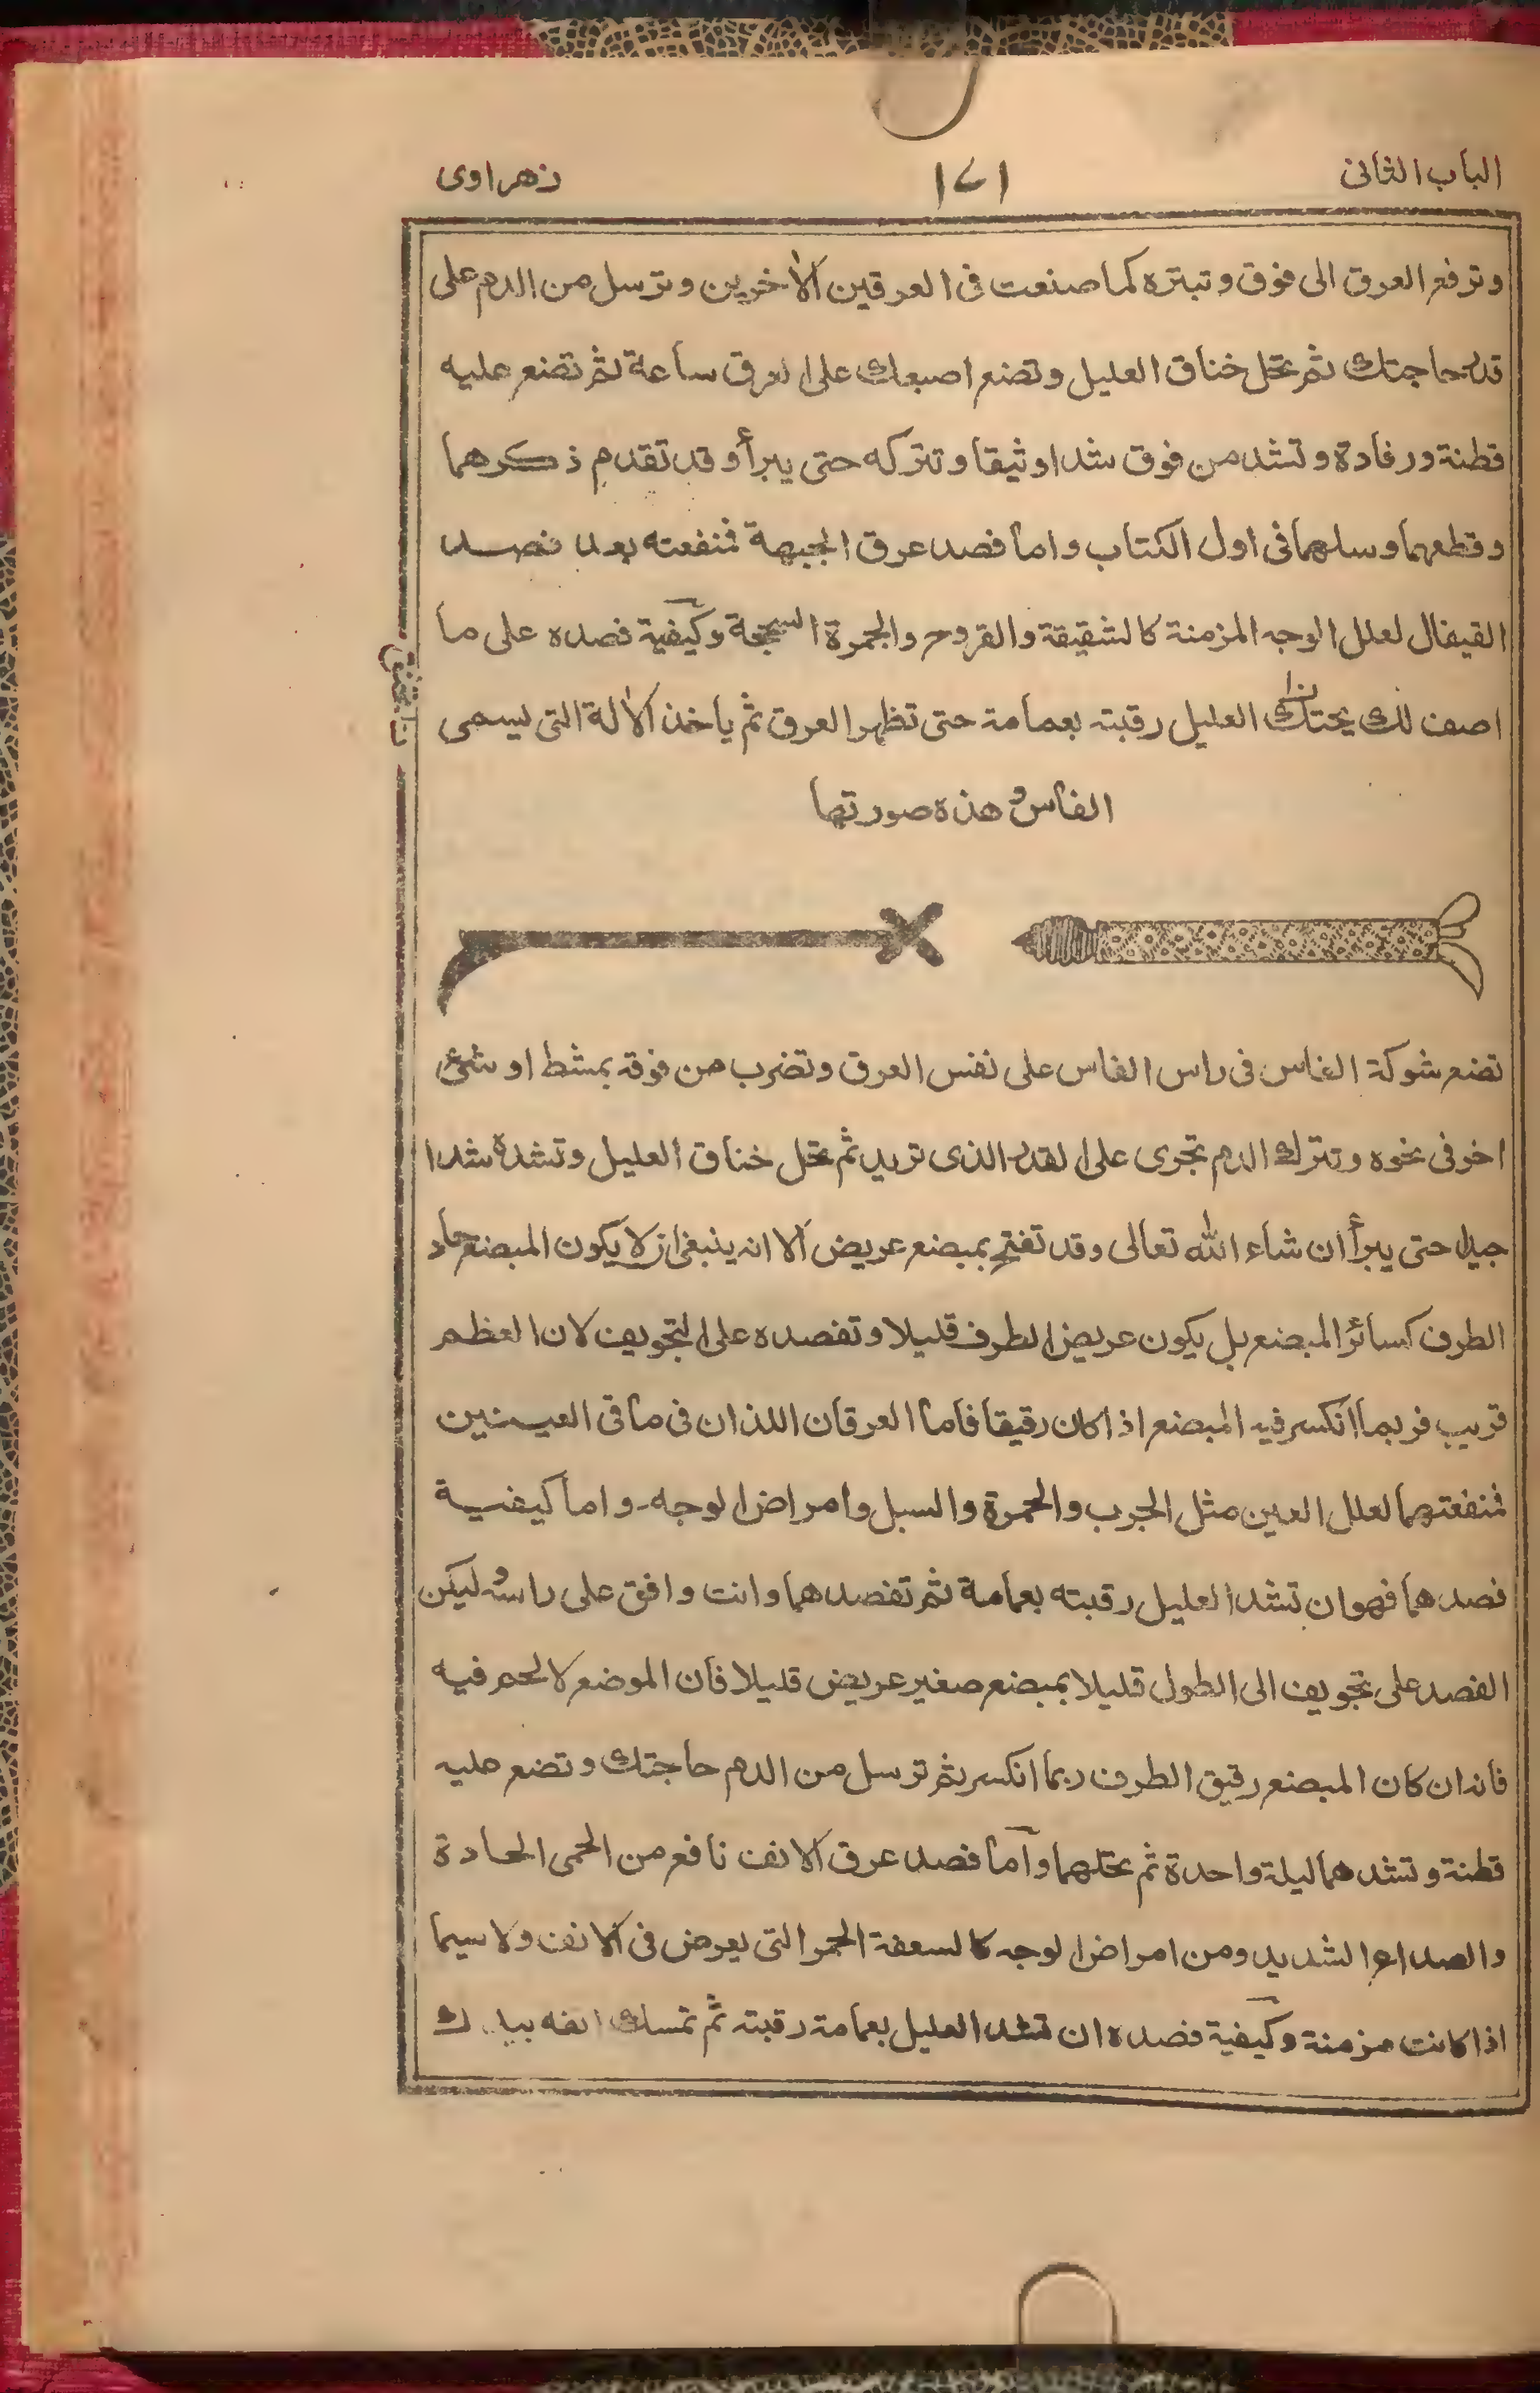 الباب الثانی ١٢١ زهراوی
وترفع العرق الى فوق وتبتره كما صنعت فى العرقين الأخرين وترسل من الدم على
قدر حاجتك ثم تحل خناق العليل وتضع اصبعك على العرق ساعة ثم تضع عليه
قطنة ورفادة وتشد من فوق شدا وثيقا وتتركه حتى يبرأ وقد تقدم ذكرهما
وقطعهما وسلهما فى اول الكتاب واما فصد عرق الجبهة فمنفعته بعد فصد
القيفال لعلل الوجه المزمنة كالشقيقة والقروح والجمرة السمجة وكيفية فصده على ما
اصف لك يختنك العليل رقبته بعمامة حتى تظهر العرق ثم ياخذ الألة التى يسمى
الفاس و هذه صورتها
تضع شوكة الفاس فى راس الفاس على نفس العرق وتضرب من فوقه بمشط او شئ
اخر فى نحوه وتترك الدم تجرى على القدر الذى تريد ثم تحل خناق العليل وتشده شدا
جيدا حتى يبرأ ان شاء الله تعالى وقد تفتح بمبضع عريض الا انه ينبغى ان لا يكون المبضع حاد
الطرف كسائر المبضع بل يكون عريض الطرف قليلا وتفصده على التجويف لان العظم
قريب فربما انكسر فيه المبضع اذا كان رقيقا فاما العرقان اللذان فى ماقى العينين
فمنفعتهما لعلل العين مثل الجرب والحمرة والسبل وامراض الوجه۔ واما كيفية
فصدهما فهو ان تشد العليل رقبته بعمامة ثم تفصدهما وانت وافق على راسه وليكن
الفصد على تجويف الى الطول قليلا بمبضع صغير عريض قليلا فان الموضع لا لحم فيه
فانه ان كان المبضع رقيق الطرف ربما انكسر ثم ترسل من الدم حاجتك وتضع عليه
قطنة وتشدهما ليلة واحدة ثم تحلهما واما فصد عرق الانف نافع من الحمى الحادة
والصداع الشديد ومن امراض الوجه كالسعفة الحمر التى يعرض فى الانف ولا سيما
اذا كانت مزمنة وكيفية فصده ان تشد العليل بعمامة رقبته ثم تمسك انفه بيدك